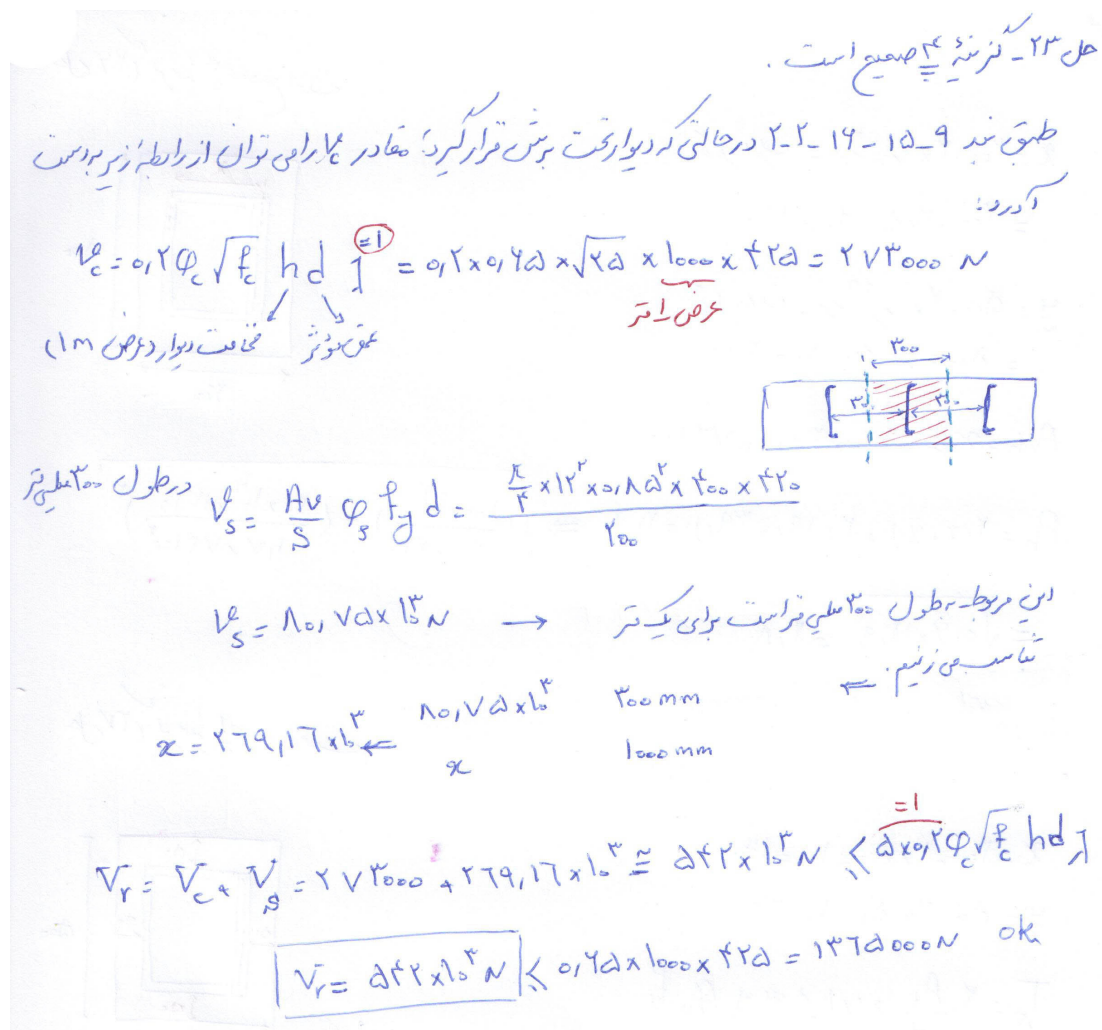 حل ۲۳ـ گزینهٔ ۴ صحیح است .
طبق بند ۹ـ۱۵ـ۱۶ـ۲ـ۲ درحالتی که دیوار تحت برش قرار گیرد؛ مقادر Vc را می توان از رابطهٔ زیر بدست
آورد:
=۱
Vc = ۰٫۲ φc √fc h d ] = ۰٫۲ × ۰٫۶۵ × √۲۵ × ۱۰۰۰ × ۴۲۵ = ۲۷۳۰۰۰ N
عرض ۱ متر
عمق مؤثر
ضخامت دیوار (عرض ۱m)
۳۰۰
۳۰۰ ۳۰۰
درطول ۳۰۰ میلی متر Vs = Av/S φs fy d = π/۴ × ۱۲² × ۰٫۸۵² × ۴۰۰ × ۴۲۰ / ۲۰۰
Vs = ۸۰٫۷۵ × ۱۰³ N → این مربوط به طول ۳۰۰ میلی متر است برای یک متر
تناسب می زنیم. ⇐
۸۰٫۷۵ × ۱۰³ ۳۰۰ mm
x = ۲۶۹٫۱۶ × ۱۰³ ⇐ x ۱۰۰۰ mm
=۱
Vr = Vc + Vs = ۲۷۳۰۰۰ + ۲۶۹٫۱۶ × ۱۰³ ≅ ۵۴۲ × ۱۰³ N ⩽ ۵×۰٫۲ φc √fc h d ]
Vr = ۵۴۲ × ۱۰³ N ⩽ ۰٫۶۵ × ۱۰۰۰ × ۴۲۵ = ۱۳۶۵۰۰۰ N ok